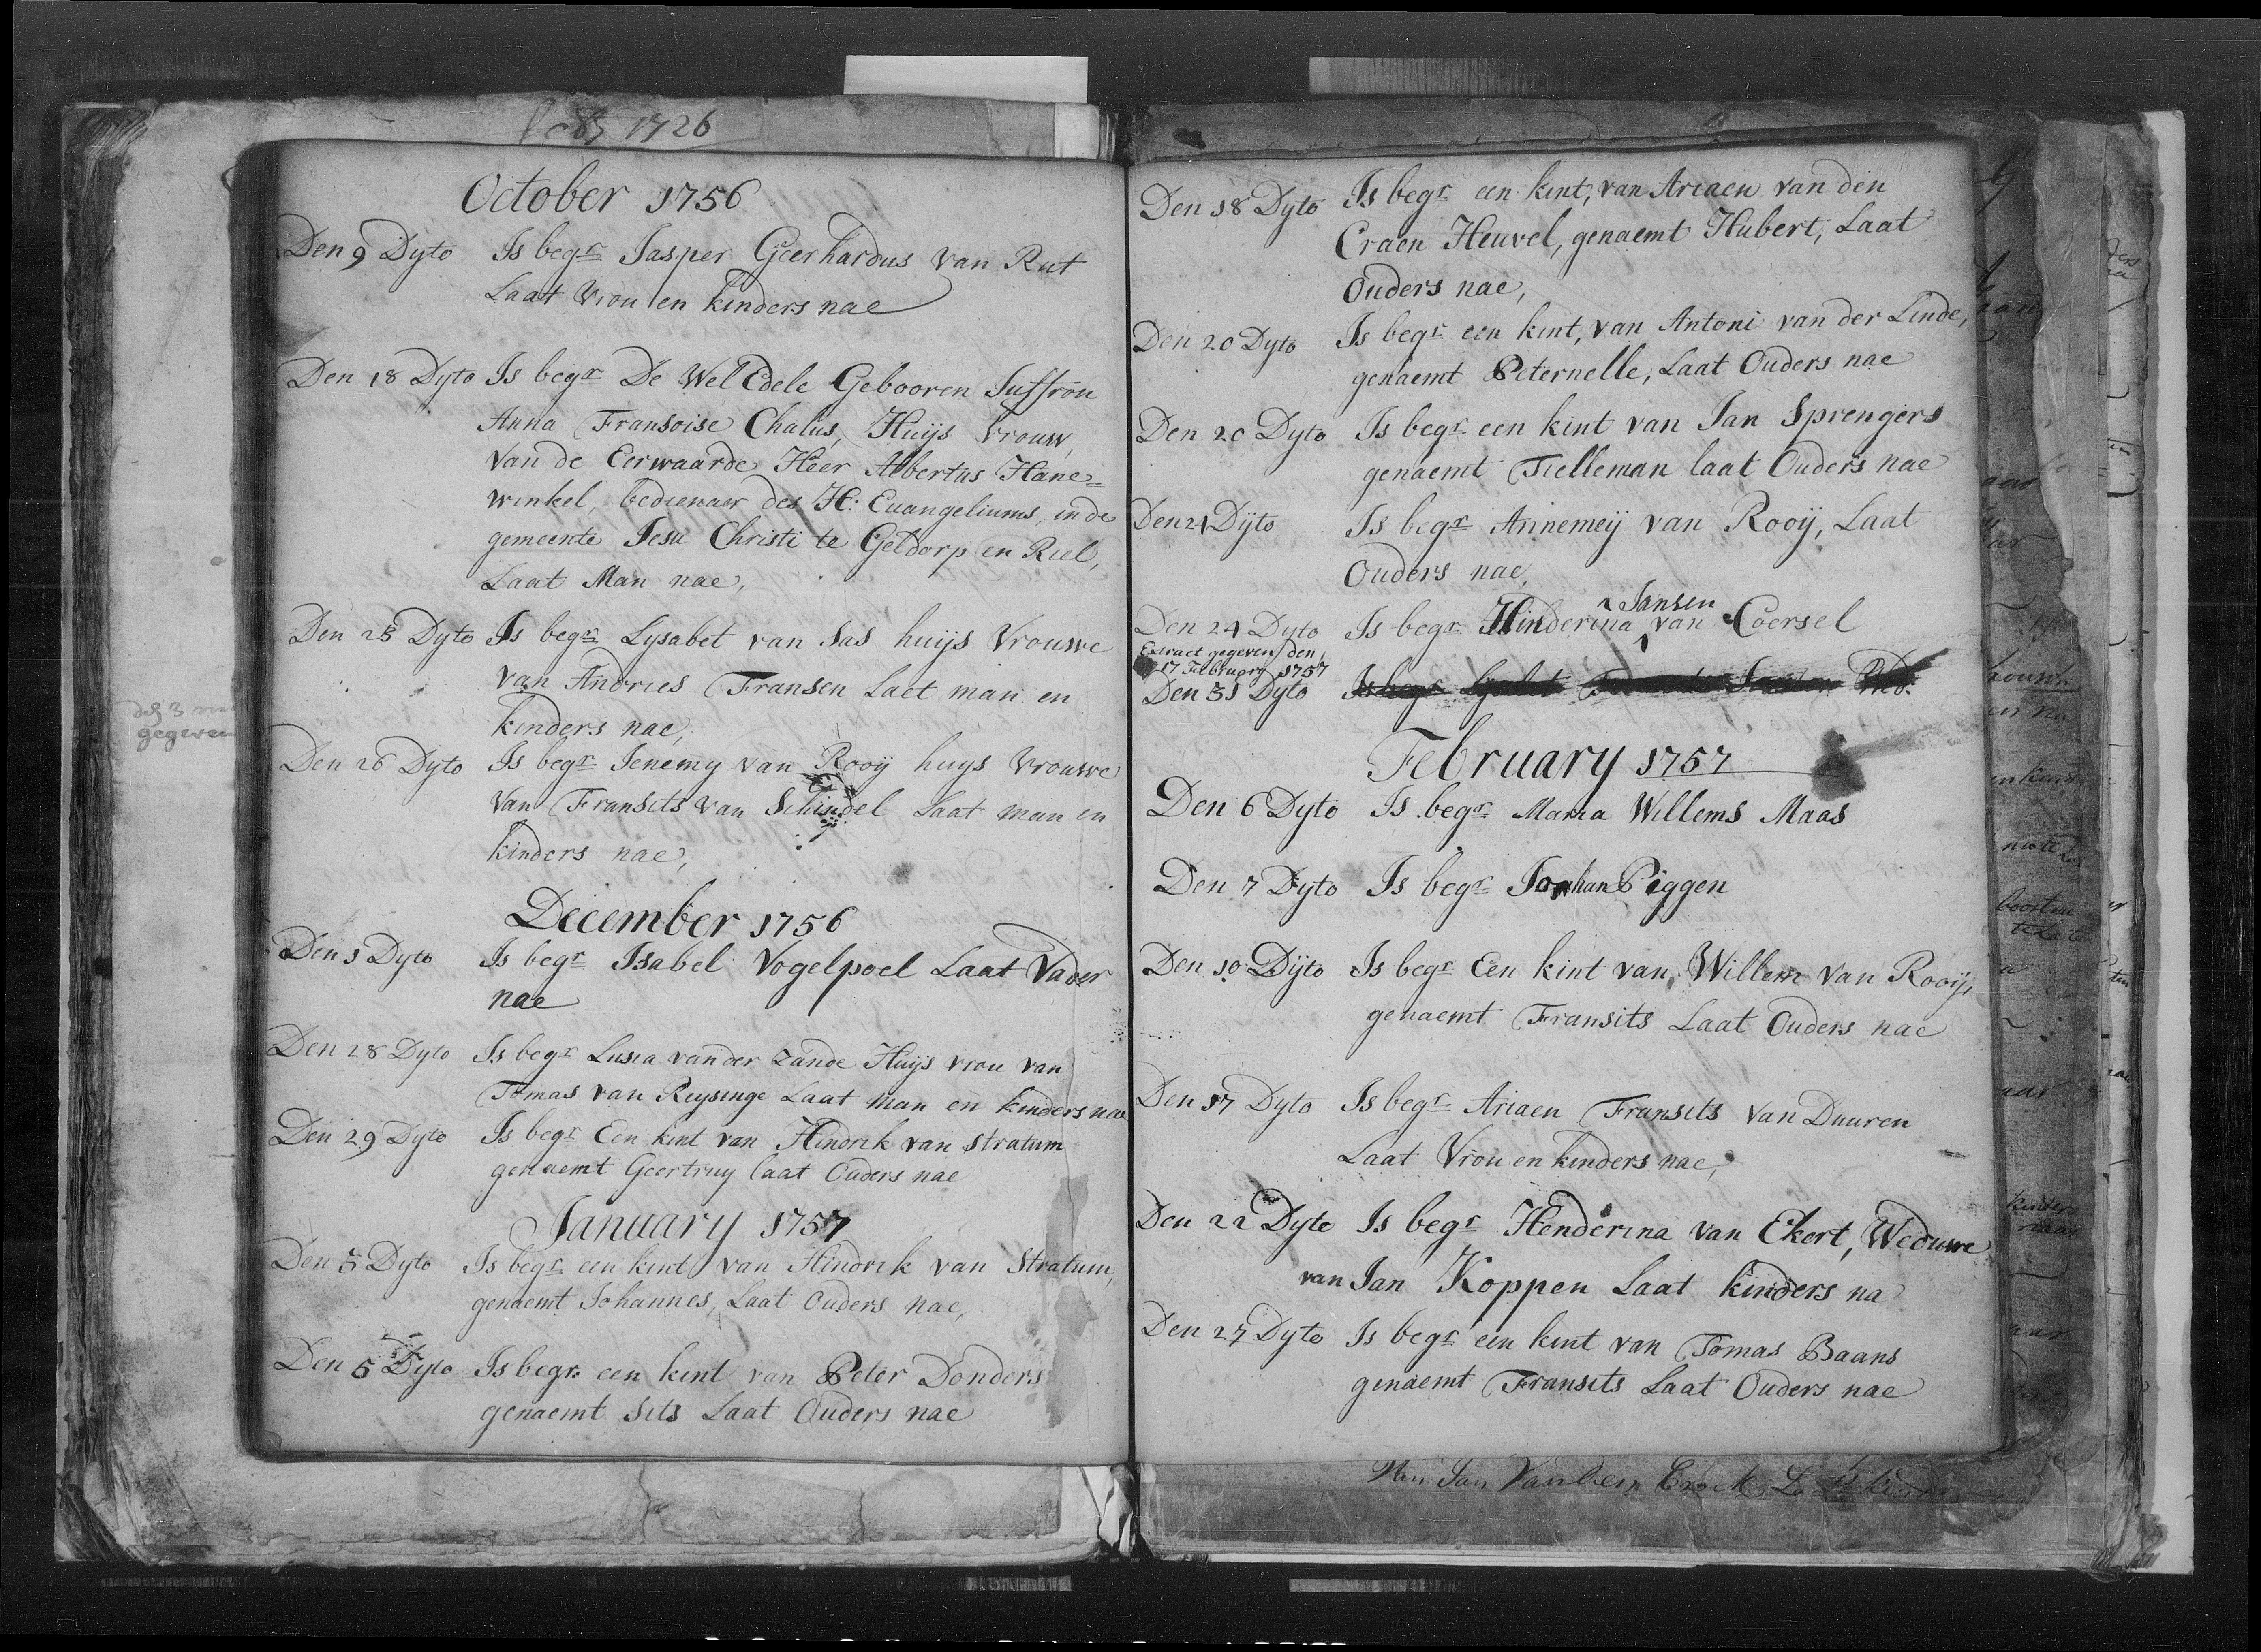 1726
October 1756
Den 9 Dyto Is begr Jasper Geerhardus van Rut
Laat Vrou en kinders nae
Den 18 Dyto Is begr De Wel Edele Gebooren Juffrou
Anna Fransoise Chalus, Huijs vrouw,
van de Eerwaarde Heer Albertus Hane=
winkel, bedienaer des H: Euangeliums, in de
gemeente Jesu Christi te Geldorp en Riel,
Laat Man nae,
Den 25 Dyto Is begr Lysabet van Sas huijs Vrouwe
van Andries Fransen Laet man en
kinders nae,
Den 26 Dyto Is begr Jenemy van Rooy huys Vrouwe
van Fransits van Schindel Laat man en
kinders nae,
December 1756
Den 1 Dyto Is begr Isabel Vogelpoel Laat Vader
nae
Den 28 Dyto Is begr Lusia vander Zande Huijs vrou van
Tomas van Ruysinge Laat man en kinders nae
Den 29 Dyto Is begr Een kint van Hindrik van Stratum
genaemt Geertruy laat Ouders nae
January 1757
Den 3 Dyto Is begr een kint van Hindrik van Stratum,
genaemt Johannes, Laat Ouders nae,
Den 5 Dyto Is begr een kint van Peter Donders
genaemt Sits Laat Ouders nae
gegeven
Den 18 Dyto Is begr een kint, van Ariaen van den
Craen Heuvel, genaemt Hubert, Laat
Ouders nae,
Den 20 Dyto Is begr een kint, van Antoni van der Linde,
genaemt Peternelle, Laat Ouders nae
Den 20 Dyto Is begr een kint van Jan Sprengers
genaemt Tielleman laat Ouders nae
Den 21 Dijto Is begr Annemeij van Rooij, Laat
Ouders nae,
Jansen
Den 24 Dyto Is begr Hinderina van Coersel
Extract gegeven den
17 February 1757
Den 31 Dyto Is begr
February 1757
Den 6 Dyto Is begr Maria Willems Maas
Den 7 Dyto Is begr Johan Piggen
Den 10 Dijto Is begr Een kint van Willem van Rooij,
genaemt Fransits Laat Ouders nae
Den 17 Dyto Is begr Ariaen Fransits van Duuren
Laat Vrou en kinders nae,
Den 22 Dyto Is begr Henderina van Ekert, Weduwe
van Jan Koppen Laat kinders na
Den 27 Dyto Is begr een kint van Tomas Baans
genaemt Fransits Laat Ouders nae
Jan Van den